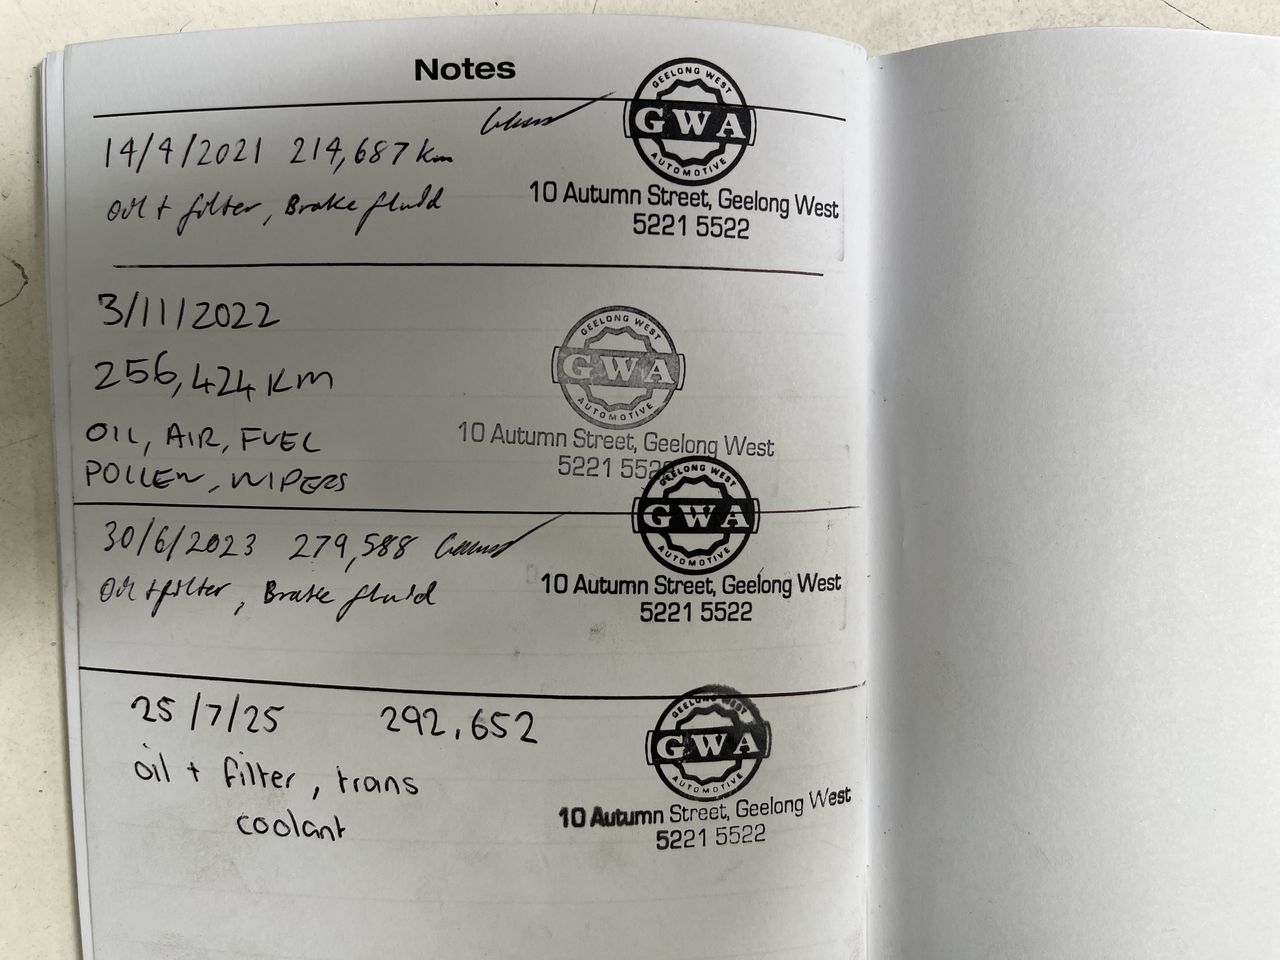 Notes
GEELONG WEST
GWA
AUTOMOTIVE
10 Autumn Street, Geelong West
5221 5522
14/4/2021 214,687 Km
Oil + filter, Brake fluid
3/11/2022
256,424 KM
OIL, AIR, FUEL
POLLEN, WIPERS
GEELONG WEST
GWA
AUTOMOTIVE
10 Autumn Street, Geelong West
5221 552
30/6/2023 279,588
Oil + filter, Brake fluid
GEELONG WEST
GWA
AUTOMOTIVE
10 Autumn Street, Geelong West
5221 5522
25/7/25 292,652
oil + filter, trans
coolant
GEELONG WEST
GWA
AUTOMOTIVE
10 Autumn Street, Geelong West
5221 5522